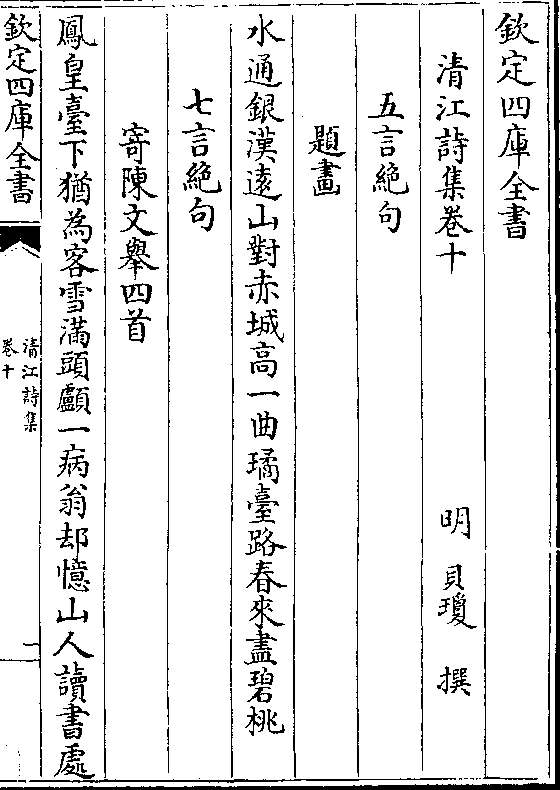 欽定四庫全書
清江詩集卷十
明 貝瓊 撰
五言絶句
題畫
水通銀漢遠山對赤城高一曲璚臺路春來盡碧桃
七言絶句
寄陳文舉四首
鳳皇臺下猶為客雪滿頭顱一病翁却憶山人讀書處
欽定四庫全書
清江詩集
卷十
一